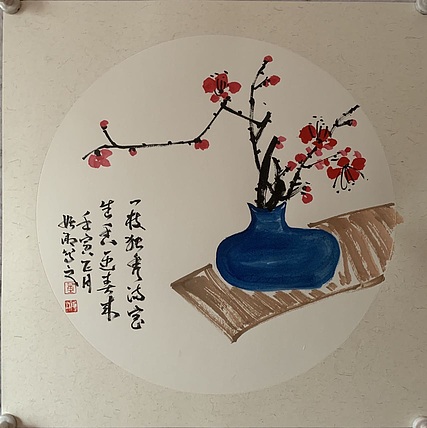 一枝独秀满室
生香迎春来
壬寅正月
雨写之